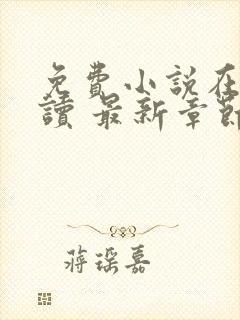 免費小說在
讀 最新章節
蔣琛嘉